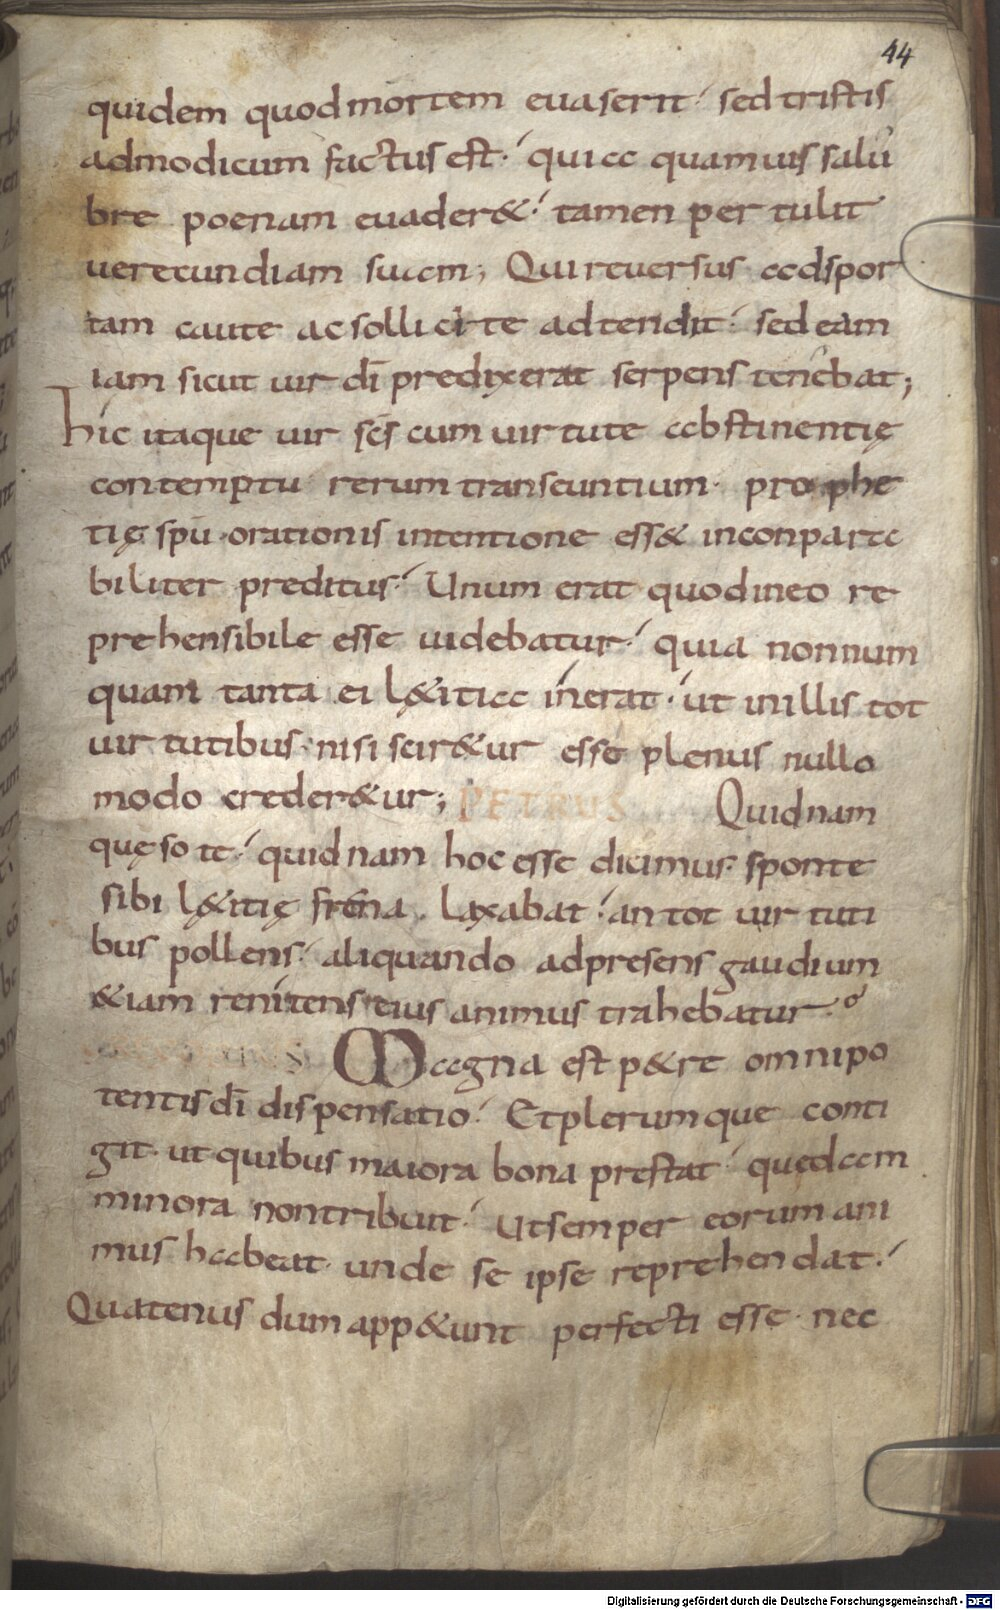 44
quidem quod mortem euaserit sed tristis
admodicum factus est. quia quamuis salu
bre poenam euader& tamen per tulit
uerecundiam suam; Qui reuersus adspor
tam caute ac sollicite adtendit. sed eam
iam sicut uir dī predixerat serpens tenebat;
hic itaque uir scs̄ cum uirtute abstinentię
contemptu rerum transeuntium. prophe
tię spū. orationis intentione ess& inconpara
biliter preditus. Unum erat quod in eo re
prehensibile esse uidebatur. quia nonnum
quam tanta ei l&̨itia inerat. ut in illis tot
uirtutibus. nisi scir&ur esse plenus nullo
modo creder&ur; PETRUS Quidnam
quęso te. quidnam hoc esse dicimus. sponte
sibi l&̨itię frena laxabat. an tot uirtuti
bus pollens. aliquando adpresens gaudium
&iam renitens eius animus trahebatur.
Magna est p&re omnipo
tentis dī dispensatio. Et plerumque conti
git. ut quibus maiora bona prestat quedam
minora non tribuit. Ut semper eorum ani
mus habeat. unde se ipse reprehendat.
Quatenus dum app&unt perfecti esse. nec
Digitalisierung gefördert durch die Deutsche Forschungsgemeinschaft - DFG